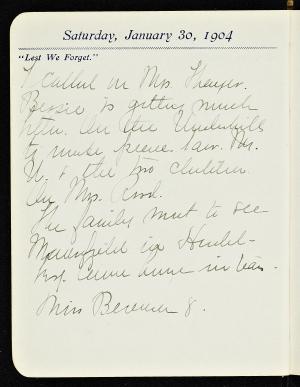 Saturday, January 30, 1904
"Lest We Forget."
I called on Mrs. Thayer.
Bessie is getting much
better. On the Underhills
to make peace. Saw Mr.
U. & the two children.
On Mrs. Rood.
The family went to see
Mansfield in Heidel-
berg. Anne came in late.
Miss 8.